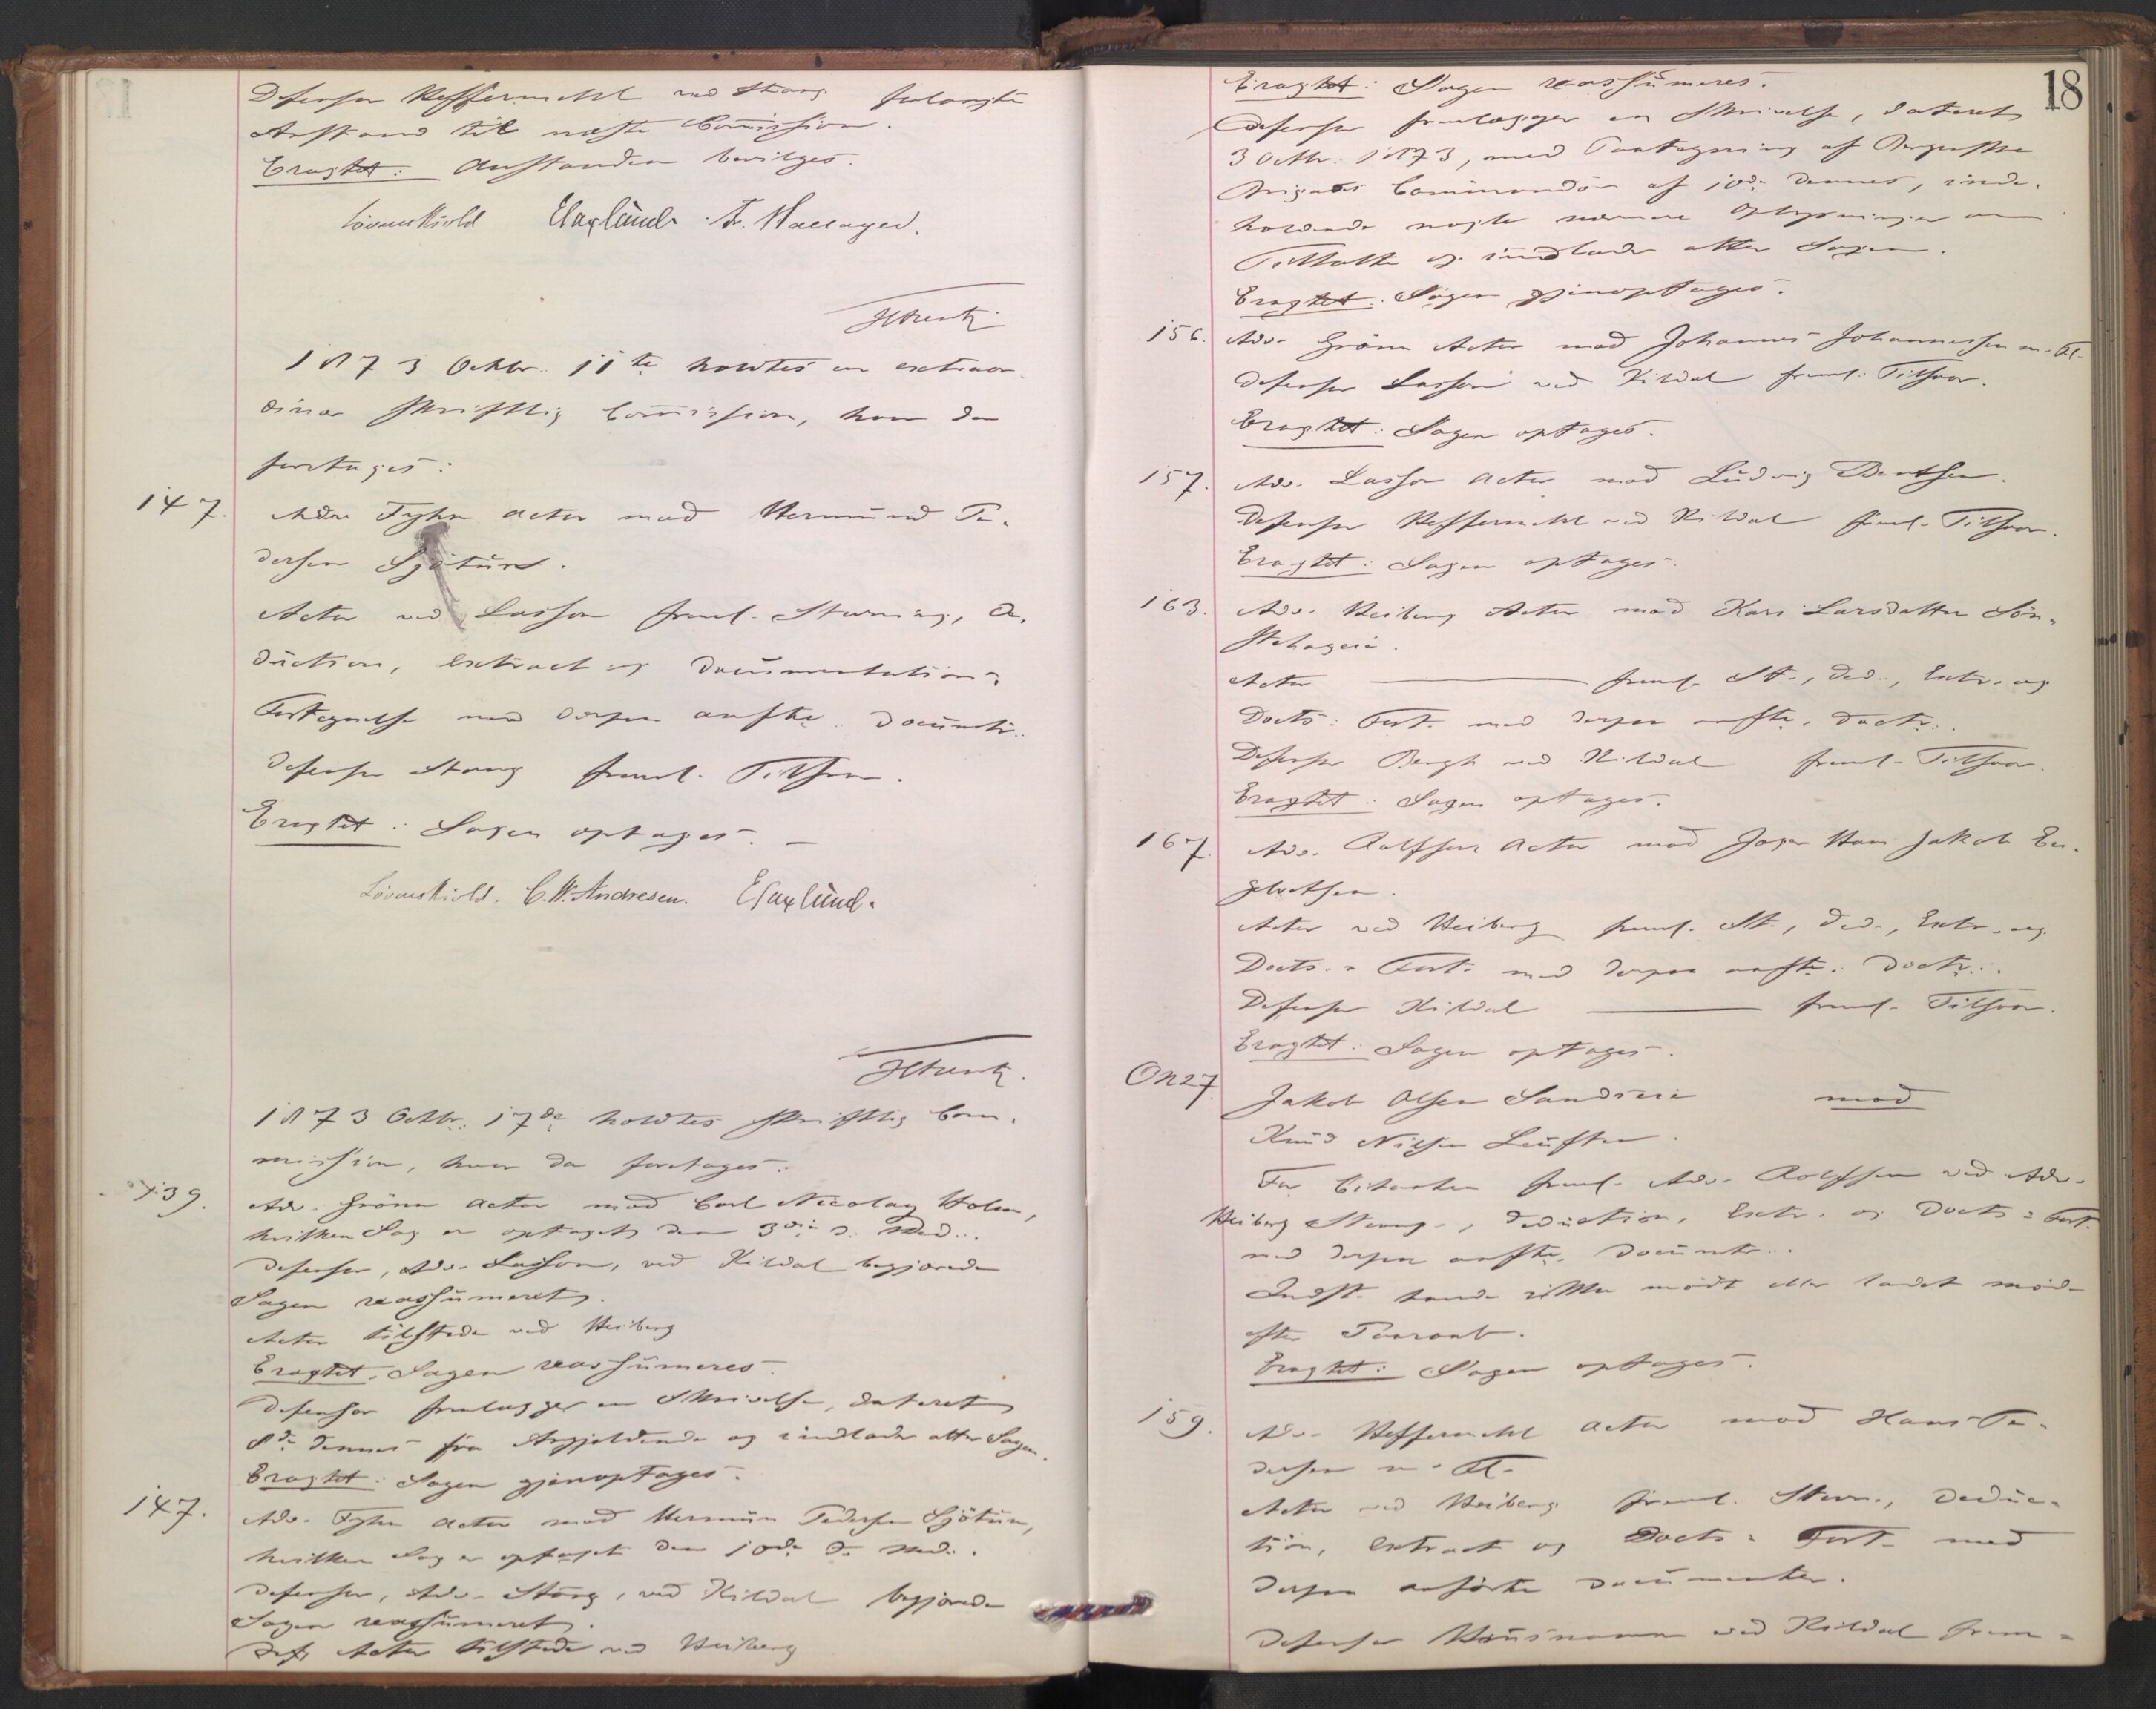 Defensor Heffermehl ved Stang forlangte
Anstand til næste Commission.
Eragtet: Anstanden bevilges.
Løvenskiold
1873 Octbr. 11te holdtes en extraor-
dinær skriftlig Commission, hvor da
foretages:
147. Advo Fyhn Actor mod Hermund Pe-
dersen Sjötun.
Actor ved Lasson freml. Stevning, De-
duction, Extract og Documentations-
Fortegnelse med derpaa anfte. Documtr.
Defensor Stang freml. Tilsvar.
Eragtet: Sagen optages. —
Løvenskiold. C. W. Andresen.
1873 Octbr. 17de holdtes skriftlig Com-
mission, hvor da foretages:
139. Adv. Grönn Actor mod Carl Nicolay Holm,
hvilken Sag er optaget den 3die d. Md.
Defensor, Adv. Lasson, ved Kildal begjærede
Sagen reassumeret.
Actor tilstede ved Heiberg
Eragtet. Sagen reassumeres.
Defensor fremlægger en Skrivelse, dateret
8de dennes fra Angjeldende og indlader atter Sagen.
Eragtet: Sagen gjenoptages.
147. Adv. Fyhn Actor mod Hermun Pedersen Sjötun,
hvilken Sag er optaget den 10de d. Md.
Defensor, Adv. Stang, ved Kildal begjærede
Sagen reassumeret.
Actor tilstede ved Heiberg
18
Eragtet: Sagen reassumeres.
Defensor fremlægger en Skrivelse, dateret
3 Octbr. 1873, med Paategning af Bergenske
Brigades Commandör af 10de dennes, inde-
holdende nogle nærmere Oplysninger om
Tiltalte og indlader atter Sagen.
Eragtet: Sagen gjenoptages.
156. Adv. Grönn Actor mod Johannes Johannessen m. Fl.
Defensor Lasson ved Kildal freml. Tilsvar.
Eragtet: Sagen optages.
157. Adv. Lasson Actor mod Ludvig Berntsen.
Defensor Heffermehl ved Kildal freml. Tilsvar.
Eragtet: Sagen optages.
163. Adv. Heiberg Actor mod Kari Larsdatter Sön-
stehageie.
Actor — freml. St., Ded., Extr. og
Docts: Fort. med derpaa anfte. Doctr.
Defensor Bergh ved Kildal freml. Tilsvar.
Eragtet: Sagen optages.
167. Adv. Rolfsen Actor mod Hans Jakob En-
gebretsen.
Actor ved Heiberg freml. St., Ded., Extr. og
Docts. = Fort. med derpaa anfte. Doctr.
Defensor Kildal — freml. Tilsvar.
Eragtet: Sagen optages.
ON27 Jakob Olsen Sandvie mod
Knud Nilsen
For Citanten freml. Adv. Rolfsen ved Adv.
Heiberg Stevng., Deduction, Extr. og Docts = Fort.
med derpaa anfte. Documtr.
Indst. havde ikke mödt eller ladet möde
efter Paaraab.
Eragtet: Sagen optages.
159. Adv. Heffermehl Actor mod Hans Pe-
dersen m. Fl.
Actor ved Heiberg freml. Stevn., Deduc-
tion, Extract og Docts = Fort. med
derpaa anförte Documenter.
Defensor Husmann ved Kildal frem=